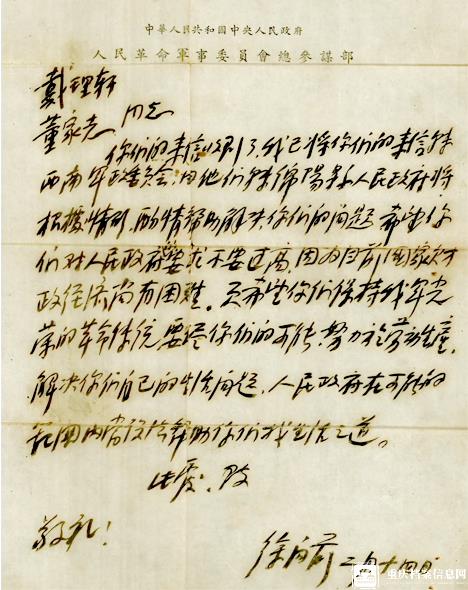 中華人民共和國中央人民政府
人民革命軍事委員會總參謀部
戴理轩
董家克 同志
你们的来信收到了,我已将你们的来信转
西南军政委员会,由他们转绵阳县人民政府将
根据情形,酌情帮助解决你们的问题,希望你
们对人民政府要求不要过高,因为目前国家财
政经济尚有困难。更希望你们保持我军光
荣的革命传统,要尽你们的可能,努力于劳动生產,
解决你们自己的生活问题。人民政府在可能的
范围内当设法帮助你们找生活之道。
此覆。致
敬礼!
徐向前 二月十四日
重庆档案信息网